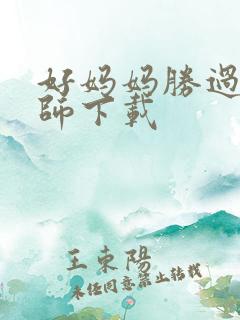 好妈妈勝過
師下載
王東陽
未任同意禁止转载